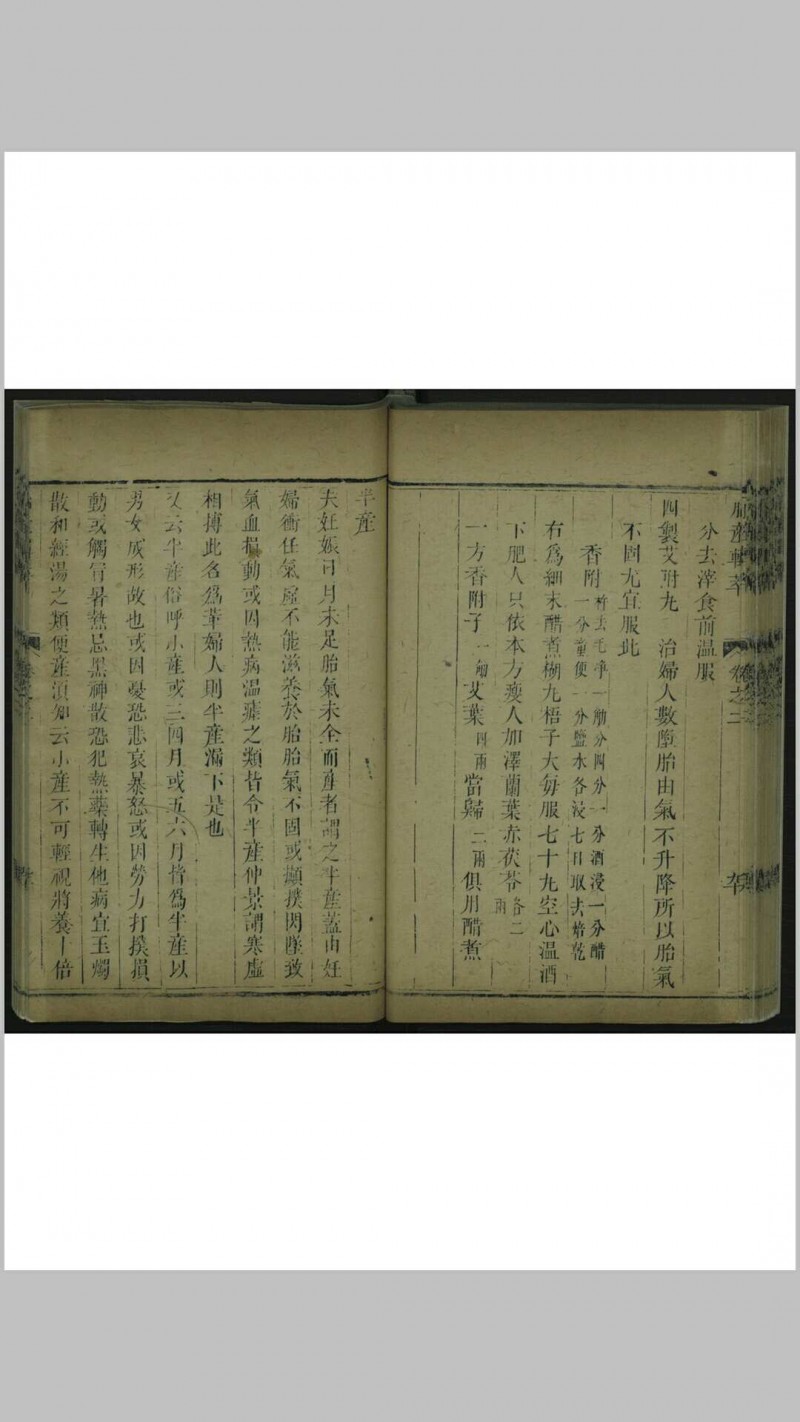 胎產輯萃 卷之二
分去滓食前温服
四製艾附丸 治婦人數墮胎由氣不升降所以胎氣
不固尤宜服此
香附 杵去毛淨一觔分四分一分酒浸一分醋
一分童便一分鹽水各浸七日取去焙乾
右爲細末醋煮糊丸梧子大每服七十丸空心温酒
下肥人只依本方瘦人加澤蘭葉赤茯苓各二兩
一方香附子一觔艾葉四兩當歸二兩俱用醋煮
半產
夫妊娠日月未足胎氣未全而產者謂之半產蓋由妊
婦衝任氣虛不能滋養於胎胎氣不固或顚撲閃墜致
氣血損動或因熱病温瘧之類皆令半產仲景謂寒虛
相搏此名爲革婦人則半產漏下是也
又云半產俗呼小產或三四月或五六月皆爲半產以
男女成形故也或因憂恐悲哀暴怒或因勞力打撲損
動或觸冒暑熱忌黑神散恐犯熱藥轉生他病宜玉燭
散和經湯之類便產須知云小產不可輕視將養十倍